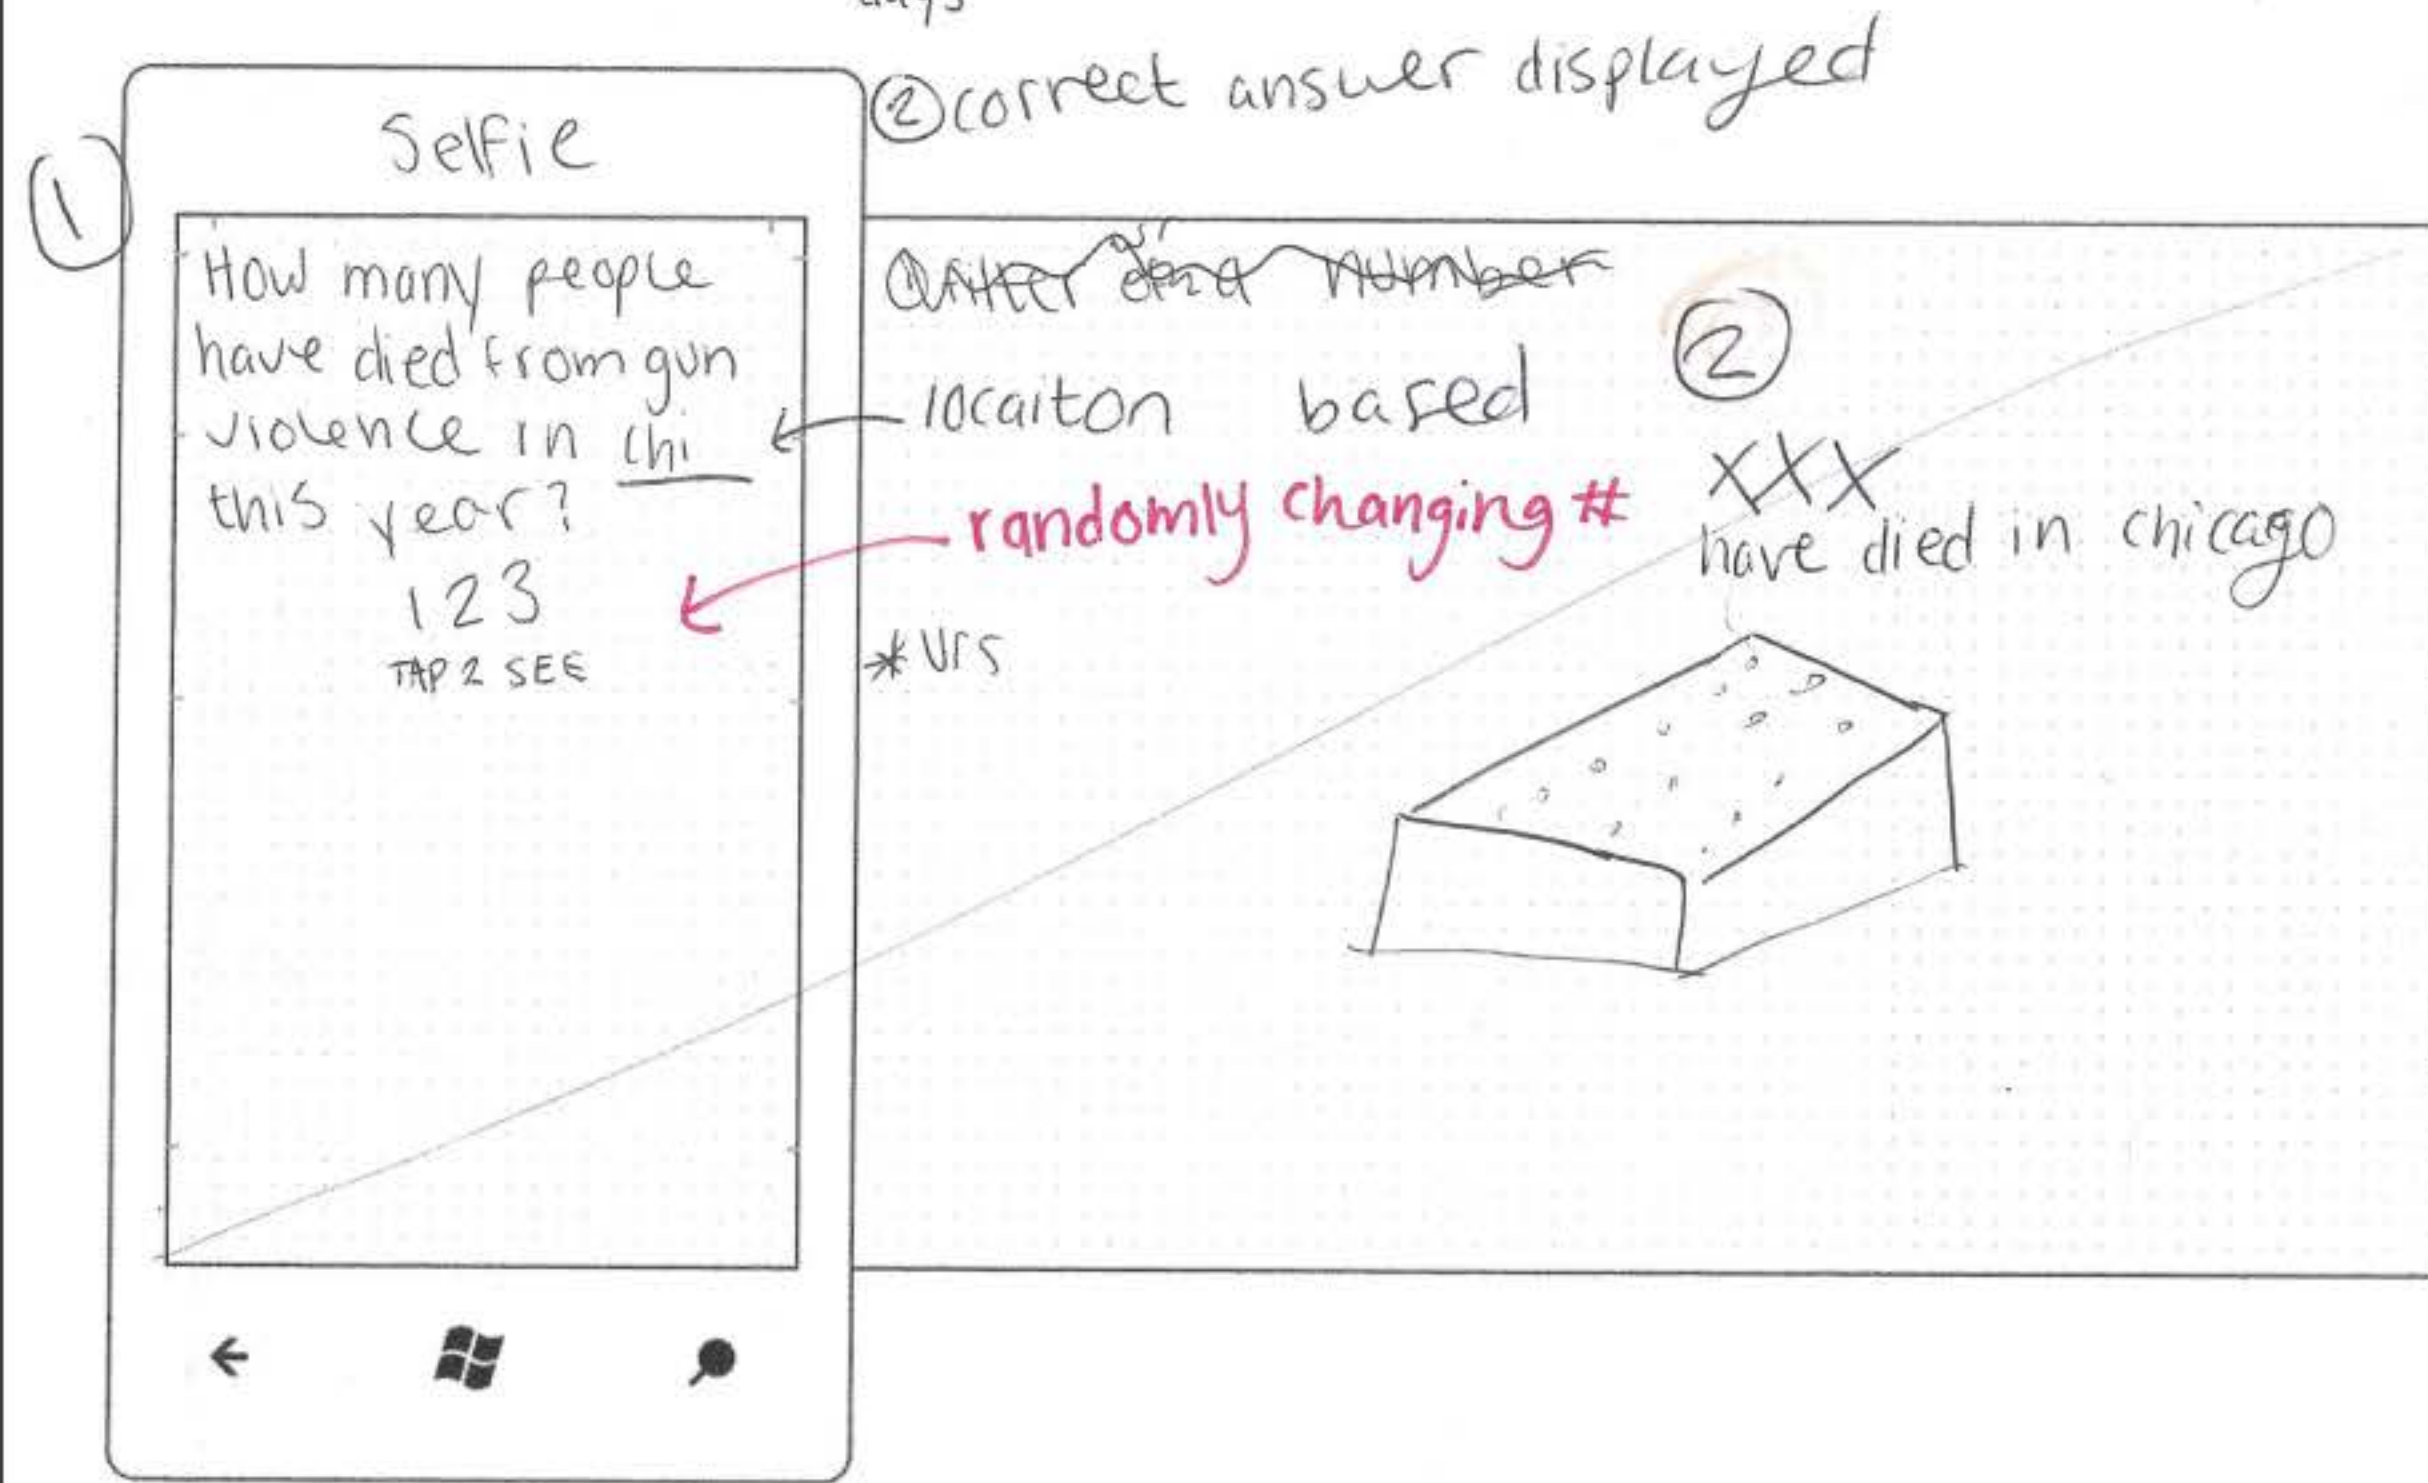 days
② correct answer displayed
①
Selfie
How many people
have died from gun
violence in chi
this year?
123
TAP 2 SEE
number
locaiton based
randomly changing #
* Vrs
②
XXX
have died in chicago